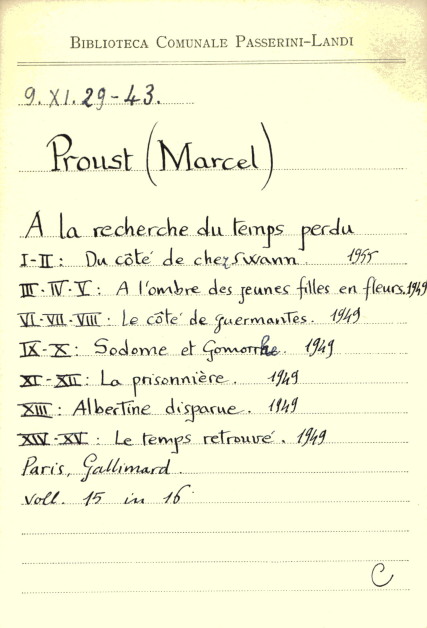 BIBLIOTECA COMUNALE PASSERINI-LANDI
9. XI. 29-43.
Proust (Marcel)
A la recherche du temps perdu
I-II: Du côté de chez Swann. 1955
III-IV-V: A l'ombre des jeunes filles en fleurs. 1949
VI-VII-VIII: Le côté de guermantes. 1949
IX-X: Sodome et Gomorrhe. 1949
XI-XII: La prisonnière. 1949
XIII: Albertine disparue. 1949
XIV-XV: Le temps retrouvé. 1949
Paris, Gallimard.
voll. 15 in 16°
C